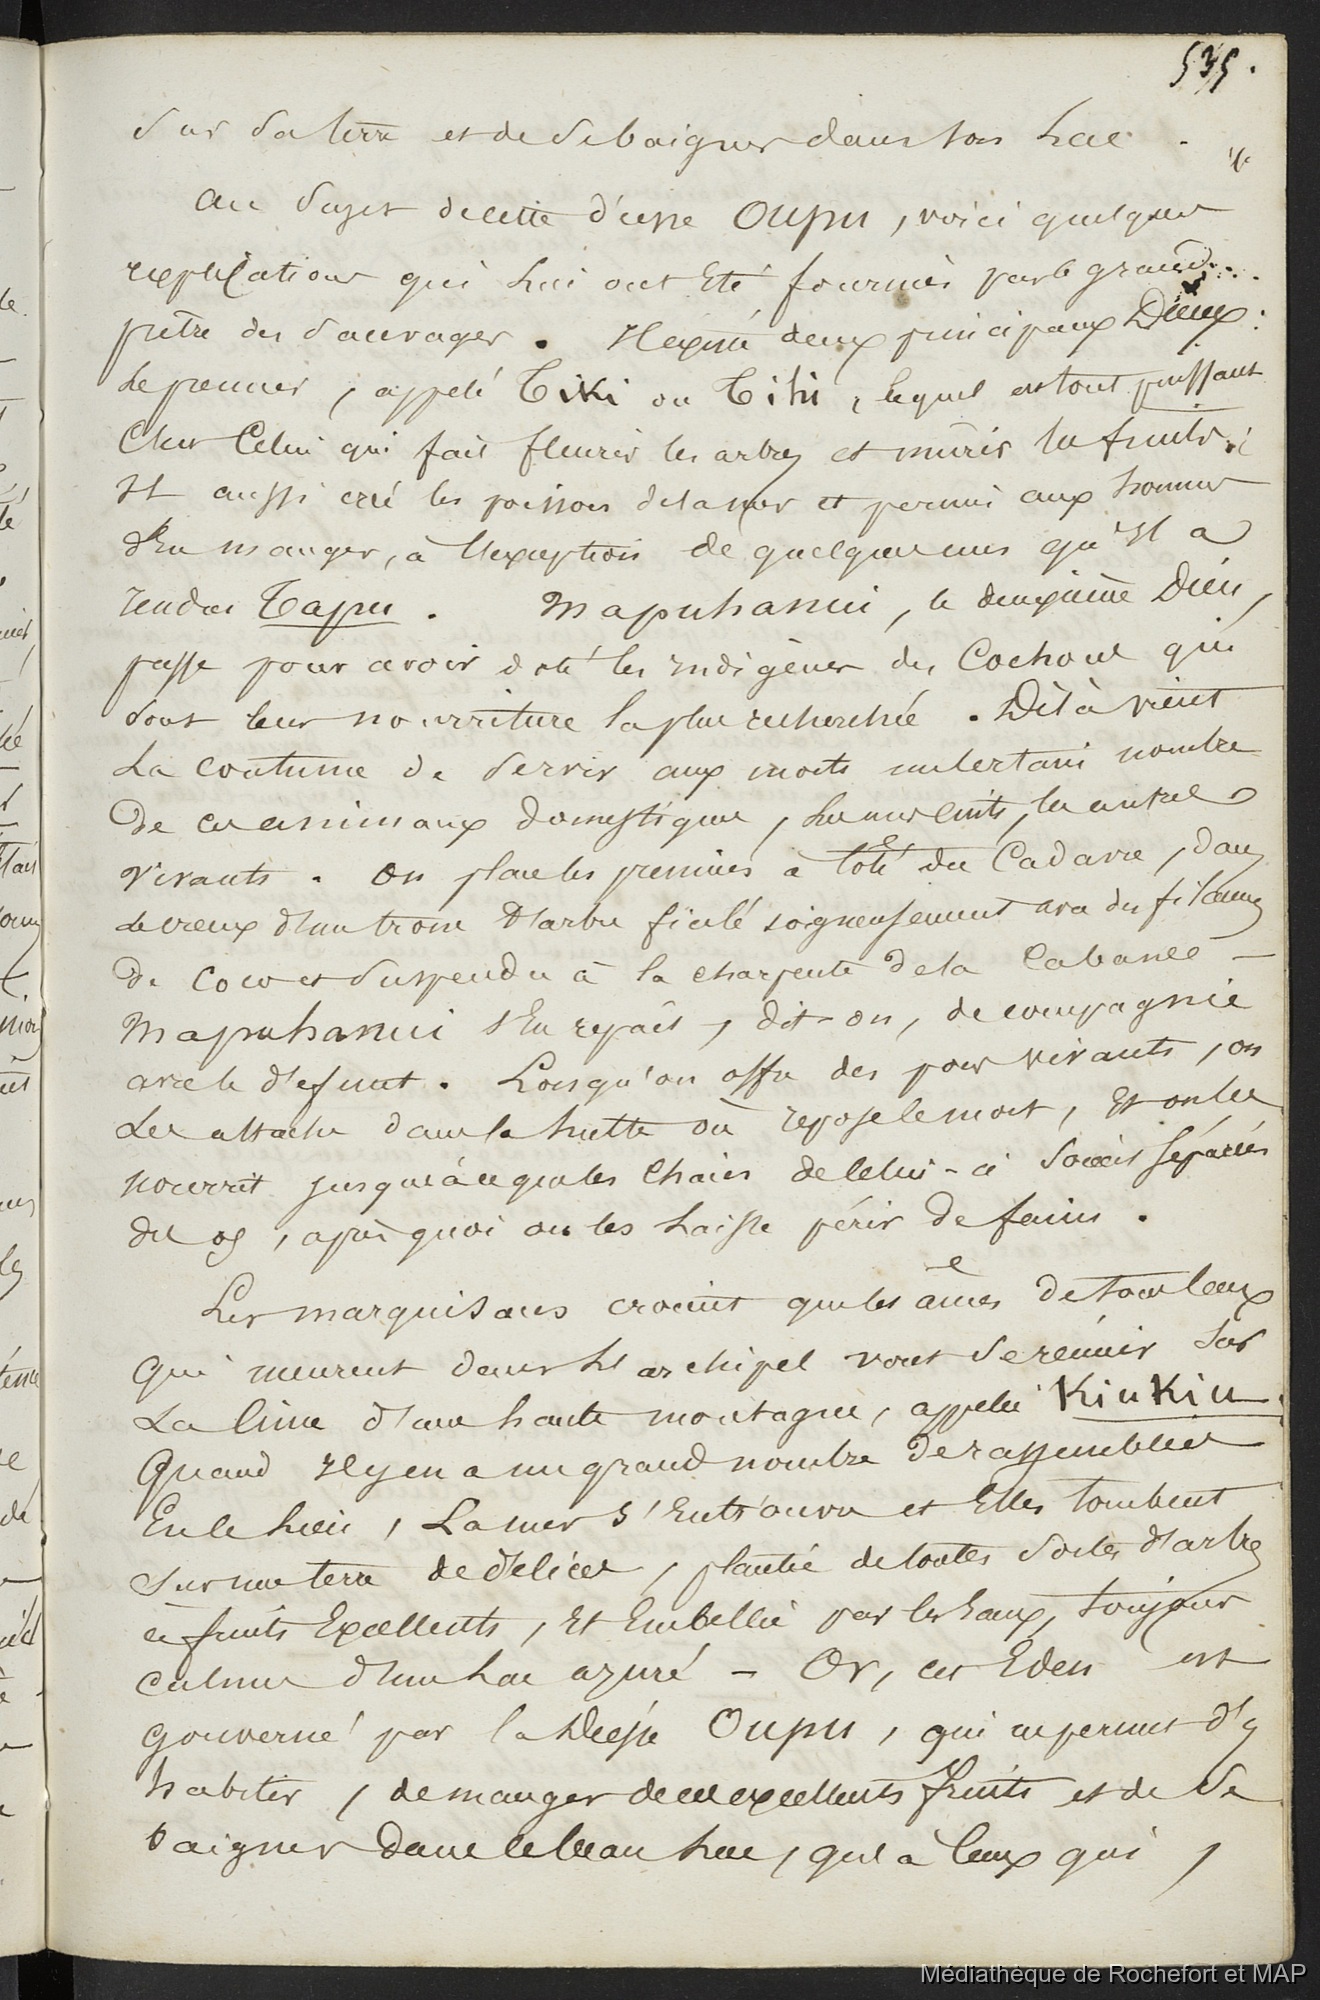 535.
Sur Sa terre et de Se baigner dans Son Lac .
Au Sujet de cette d'éesse Oupu, voici quelques
Explications qui Lui ont Eté fournies par le grand...
prêtre des Sauvages. Il existe deux principaux Dieux:
Le premier, appelé Tiki ou Tihi, lequel est tout puissant
C'est Celui qui fait fleurir les arbres et mûrir les fruits;
Il aussi créé les poissons de la mer et permis aux hommes
d'En manger, à l'exception de quelques uns qu'Il a
rendus Tapu. Mapuhanui, le deuxième Dieu,
passe pour avoir doté les Indigènes des Cochons qui
Sont leur nourriture la plus recherchée. De là vient
La coutume de Servir aux morts un certain nombre
De ces animaux domestiques, les uns cuits, les autres
vivants. On place les premiers à côté du Cadavre, dans
Le creux d'un tronc d'arbre ficelé soigneusement avec des filaments
De Coco et Suspendu à la charpente de la Cabane –
Mapuhanui s'En repait, dit-on, de compagnie
avec le d'éfunt. Lorsqu'on offre des porcs vivants, on
Les attache dans la hutte où repose le mort, Et on les
nourrit jusqu'à ce que les Chairs de Celui-ci Soient Séparées
des os, après quoi on les Laisse périr De faim.
Les marquisans croient que les âmes De tous Ceux
qui meurent dans L'archipel vont Se réunir Sur
La Cime d'une haute montagne, appelée KiuKiu.
Quand Il y en a un grand nombre De rassemblées
En ce Lieu, La mer S'Entr'ouvre et Elles tombent
Sur une terre de délices, plantée de toutes Sortes d'arbres
à fruits Excellents, Et Embellie par les Eaux, toujours
calmes d'un Lac azuré – Or, cet Eden est
gouverné par la Déesse Oupu, qui ne permet d'y
habiter, de manger de ces excellents fruits et de Se
baigner Dans ce beau Lac, qu'à Ceux qui,
Médiathèque de Rochefort et MAP